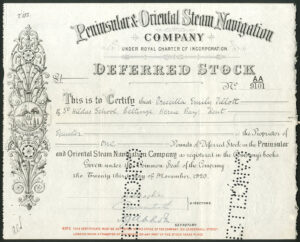 Peninsular & Oriental Steam Navigation
COMPANY
UNDER ROYAL CHARTER OF INCORPORATION.
DEFERRED STOCK
£1
No. AA 9101
This is to Certify that Priscilla Emily Talbott
of St Hildas School, Beltinge, Herne Bay, Kent
Spinster is the Proprietor of
One Pounds of Deferred Stock in the Peninsular
and Oriental Steam Navigation Company as registered in the Company's Books
Given under the Common Seal of the Company
the Twenty third day of November, 1920.
SECRETARY